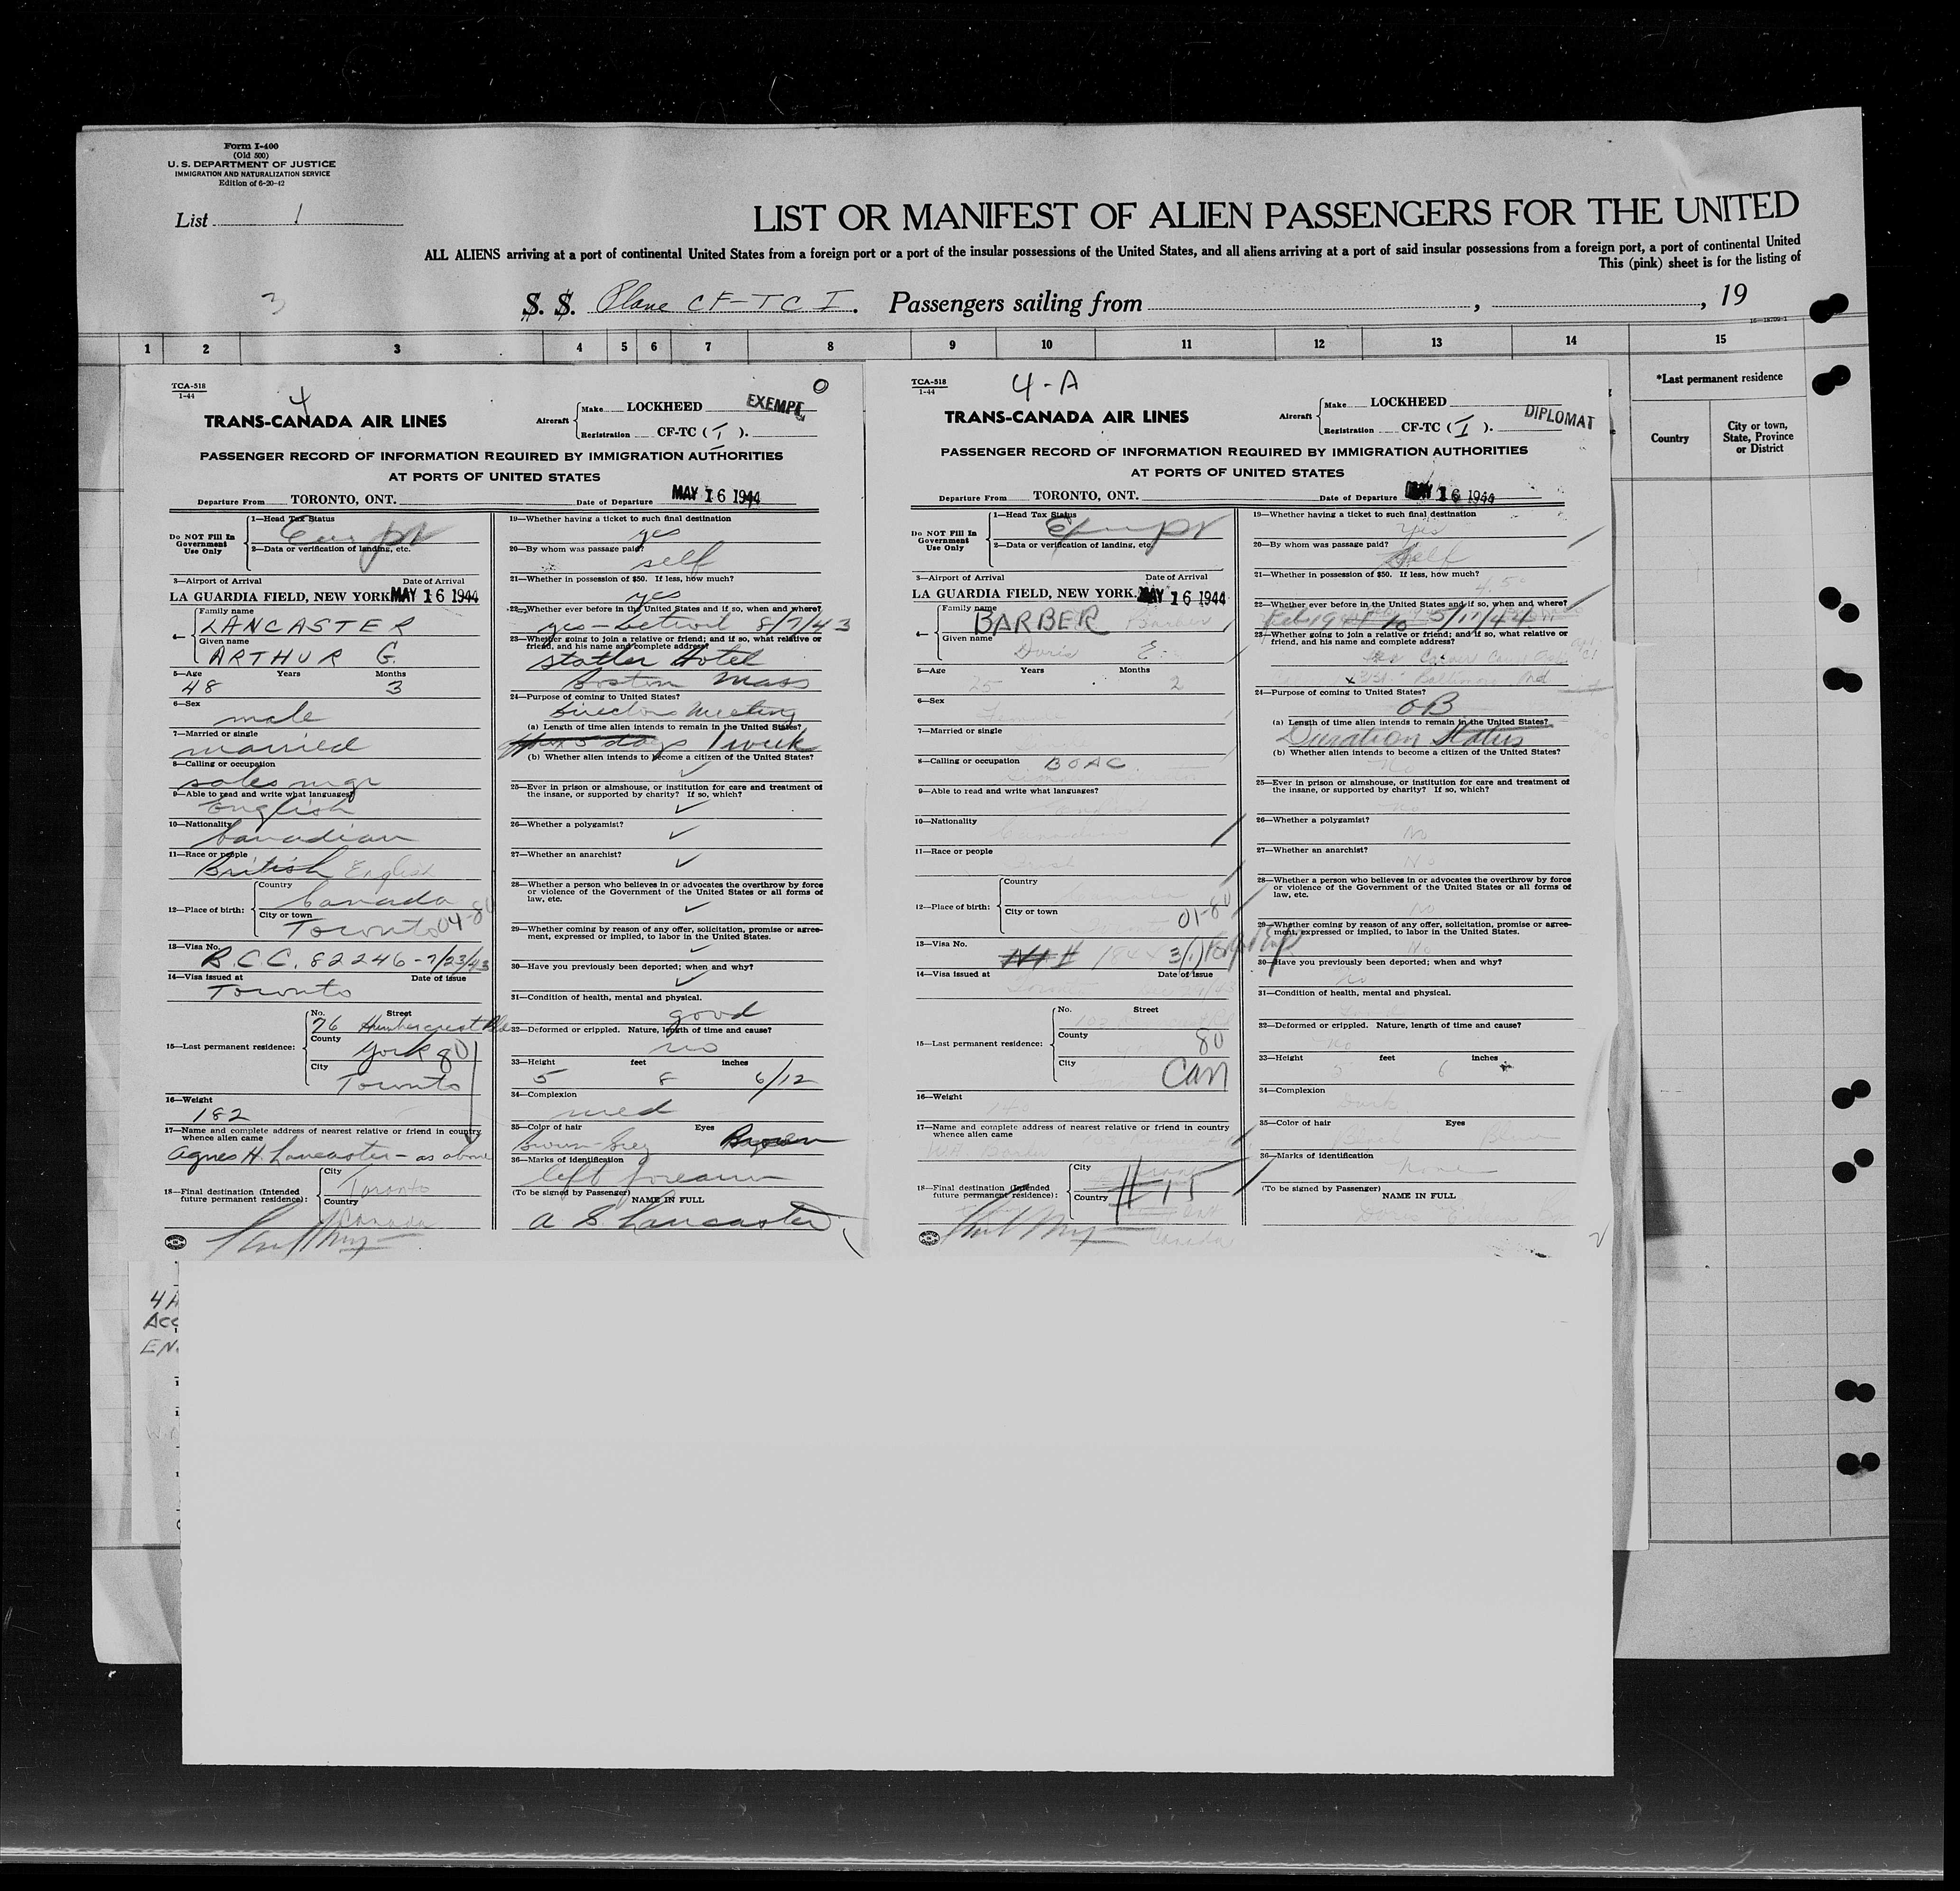 Form I-400
(Old 500)
U. S. DEPARTMENT OF JUSTICE
IMMIGRATION AND NATURALIZATION SERVICE
Edition of 6-20-42
List 1
LIST OR MANIFEST OF ALIEN PASSENGERS FOR THE UNITED
ALL ALIENS arriving at a port of continental United States from a foreign port or a port of the insular possessions of the United States, and all aliens arriving at a port of said insular possessions from a foreign port, a port of continental United
This (pink) sheet is for the listing of
3
S. S. Plane CF-TC I. Passengers sailing from , , 19
16-18709-1
1 2 3 4 5 6 7 8 9 10 11 12 13 14 15
*Last permanent residence
Country
City or town, State, Province or District
TCA-518
1-44
4
O
TRANS-CANADA AIR LINES
Aircraft
Make LOCKHEED
EXEMPT
Registration CF-TC ( I ).
PASSENGER RECORD OF INFORMATION REQUIRED BY IMMIGRATION AUTHORITIES
AT PORTS OF UNITED STATES
Departure From TORONTO, ONT. Date of Departure MAY 16 1944
Do NOT Fill In Government Use Only
1—Head Tax Status
Exempt
2—Data or verification of landing, etc.
3—Airport of Arrival Date of Arrival
LA GUARDIA FIELD, NEW YORK MAY 16 1944
4—
Family name
LANCASTER
Given name
ARTHUR G.
5—Age Years Months
48 3
6—Sex
male
7—Married or single
married
8—Calling or occupation
sales mgr
9—Able to read and write what languages?
English
10—Nationality
Canadian
11—Race or people
British English
12—Place of birth:
Country
Canada
City or town
Toronto 04-80
13—Visa No.
B.C.C. 82246-7/23/43
14—Visa issued at Date of Issue
Toronto
15—Last permanent residence:
No. Street
76 Humbercrest Bld
County
York 80
City
Toronto
16—Weight
182
17—Name and complete address of nearest relative or friend in country whence alien came
Agnes H. Lancaster - as above
18—Final destination (Intended future permanent residence):
City
Toronto
Country
Canada
19—Whether having a ticket to such final destination
yes
20—By whom was passage paid?
self
21—Whether in possession of $50. If less, how much?
yes
22—Whether ever before in the United States and if so, when and where?
yes - Detroit 8/7/43
23—Whether going to join a relative or friend; and if so, what relative or friend, and his name and complete address?
Statler Hotel
Boston Mass
24—Purpose of coming to United States?
Directors Meeting
(a) Length of time alien intends to remain in the United States?
5 days 1 week
(b) Whether alien intends to become a citizen of the United States?
25—Ever in prison or almshouse, or institution for care and treatment of the insane, or supported by charity? If so, which?
26—Whether a polygamist?
27—Whether an anarchist?
28—Whether a person who believes in or advocates the overthrow by force or violence of the Government of the United States or all forms of law, etc.
29—Whether coming by reason of any offer, solicitation, promise or agreement, expressed or implied, to labor in the United States.
30—Have you previously been deported; when and why?
31—Condition of health, mental and physical.
good
32—Deformed or crippled. Nature, length of time and cause?
no
33—Height feet inches
5 8 6/12
34—Complexion
med
35—Color of hair Eyes
Brown-Grey Brown
36—Marks of identification
left forearm
(To be signed by Passenger) NAME IN FULL
A G Lancaster
TCA-518
1-44
4-A
TRANS-CANADA AIR LINES
Aircraft
Make LOCKHEED
DIPLOMAT
Registration CF-TC ( I ).
PASSENGER RECORD OF INFORMATION REQUIRED BY IMMIGRATION AUTHORITIES
AT PORTS OF UNITED STATES
Departure From TORONTO, ONT. Date of Departure MAY 16 1944
Do NOT Fill In Government Use Only
1—Head Tax Status
Exempt
2—Data or verification of landing, etc.
3—Airport of Arrival Date of Arrival
LA GUARDIA FIELD, NEW YORK. MAY 16 1944
4—
Family name
BARBER Barber
Given name
Doris E.
5—Age Years Months
25 2
6—Sex
7—Married or single
8—Calling or occupation BOAC
9—Able to read and write what languages?
10—Nationality
Canadian
11—Race or people
Irish
12—Place of birth:
Country
City or town
01-80
13—Visa No.
14—Visa issued at Date of Issue
Toronto
15—Last permanent residence:
No. Street
County
80
City
Can
16—Weight
140
17—Name and complete address of nearest relative or friend in country whence alien came
Barber
18—Final destination (Intended future permanent residence):
City
Country
#15
Canada
19—Whether having a ticket to such final destination
Yes
20—By whom was passage paid?
Self
21—Whether in possession of $50. If less, how much?
22—Whether ever before in the United States and if so, when and where?
5/17/44
23—Whether going to join a relative or friend; and if so, what relative or friend, and his name and complete address?
Baltimore, Md
24—Purpose of coming to United States?
OB
(a) Length of time alien intends to remain in the United States?
Duration Status
(b) Whether alien intends to become a citizen of the United States?
No
25—Ever in prison or almshouse, or institution for care and treatment of the insane, or supported by charity? If so, which?
No
26—Whether a polygamist?
No
27—Whether an anarchist?
No
28—Whether a person who believes in or advocates the overthrow by force or violence of the Government of the United States or all forms of law, etc.
No
29—Whether coming by reason of any offer, solicitation, promise or agreement, expressed or implied, to labor in the United States.
No
30—Have you previously been deported; when and why?
No
31—Condition of health, mental and physical.
32—Deformed or crippled. Nature, length of time and cause?
No
33—Height feet inches
5 6
34—Complexion
Dark
35—Color of hair Eyes
36—Marks of identification
None
(To be signed by Passenger) NAME IN FULL
Doris E.